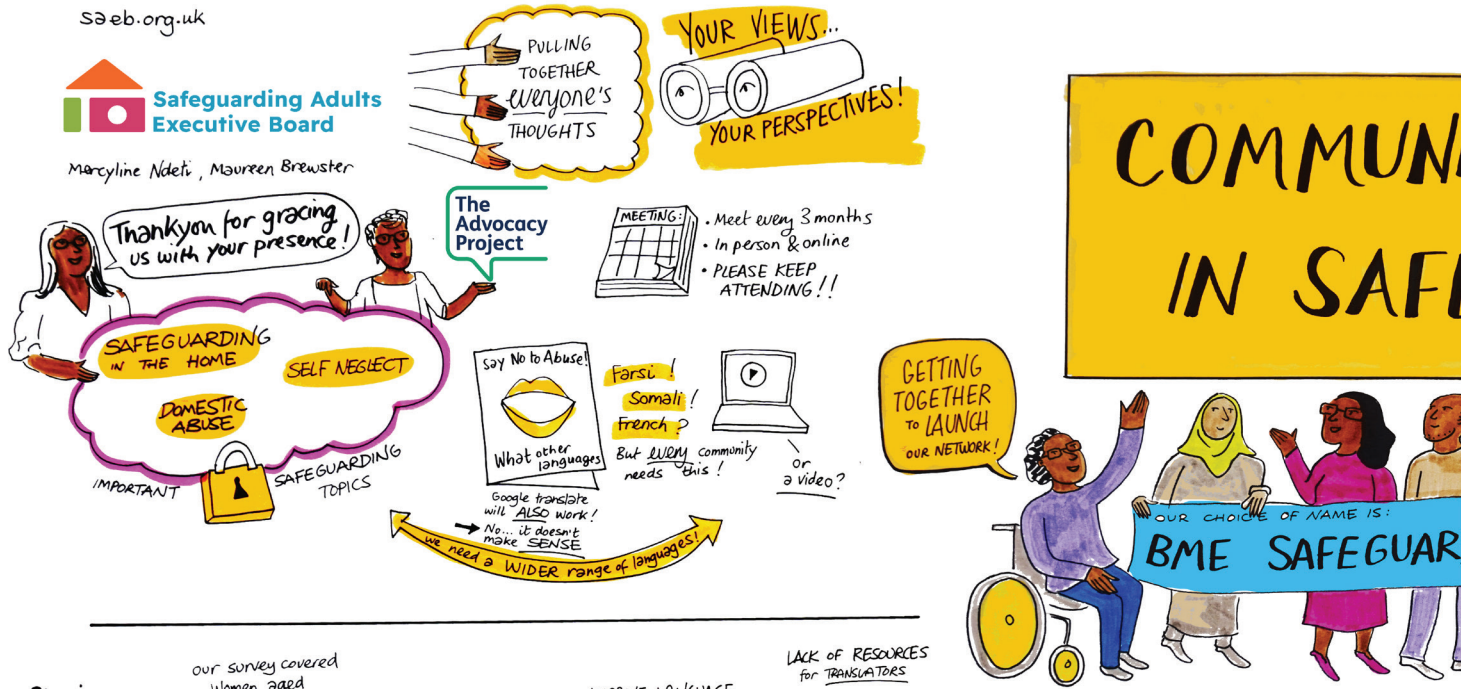 saeb.org.uk
Safeguarding Adults
Executive Board
Mercyline Ndeti, Maureen Brewster
PULLING
TOGETHER
everyone's
THOUGHTS
YOUR VIEWS...
YOUR PERSPECTIVES!
Thankyou for gracing
us with your presence!
The
Advocacy
Project
MEETING:
• Meet every 3 months
• In person & online
• PLEASE KEEP
ATTENDING!!
SAFEGUARDING
IN THE HOME
SELF NEGLECT
DOMESTIC
ABUSE
IMPORTANT
SAFEGUARDING
TOPICS
Say No to Abuse!
What other
languages
Farsi!
Somali!
French?
But every community
needs this!
or
a video?
Google translate
will ALSO work!
→ No... it doesn't
make SENSE
we need a WIDER range of languages!
COMMUN
IN SAF
GETTING
TOGETHER
TO LAUNCH
OUR NETWORK!
OUR CHOICE OF NAME IS:
BME SAFEGUAR
our survey covered
women aged
LACK OF RESOURCES
for TRANSLATORS